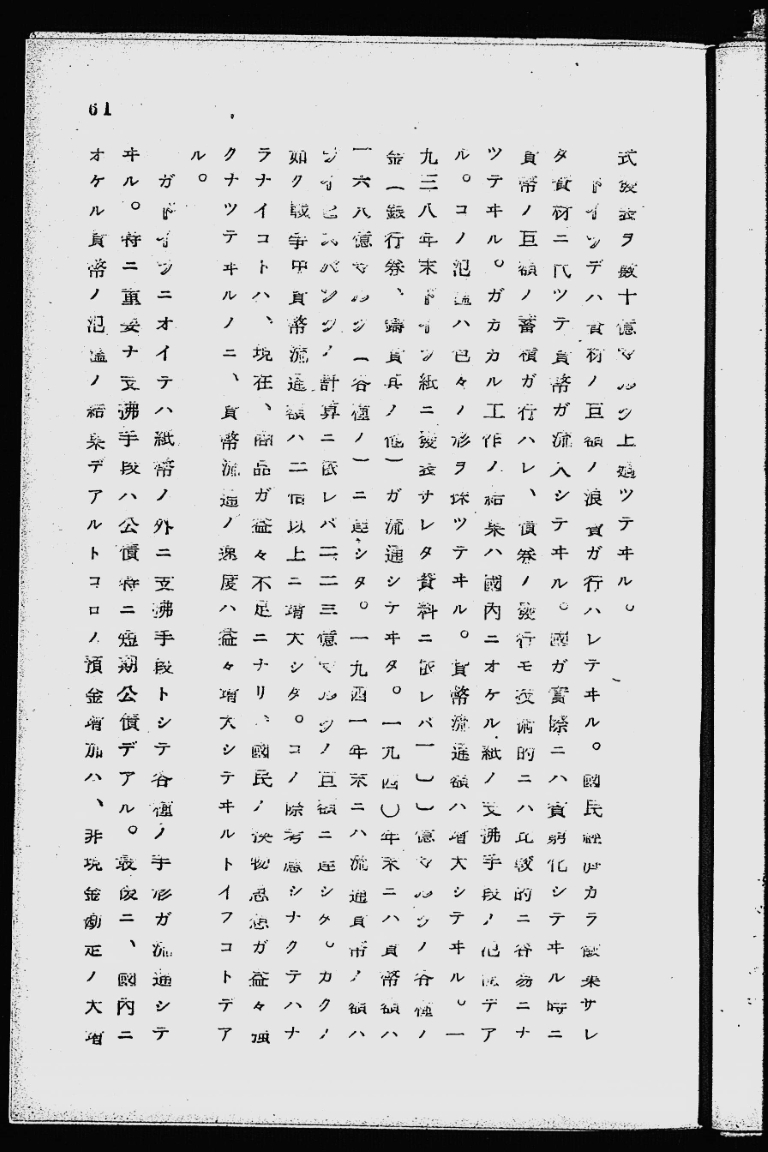 61
式發表ヲ數十億マルク上廻ツテヰル。
ドイツデハ資材ノ巨額ノ浪費ガ行ハレテヰル。國民經濟カラ徴集サレ
タ資材ニ代ツテ貨幣ガ流入シテヰル。國ガ實際ニハ貧弱化シテヰル時ニ
貨幣ノ巨額ノ蓄積ガ行ハレ、債券ノ發行モ技術的ニハ比較的ニ容易ニナ
ツテヰル。ガカカル工作ノ結果ハ國內ニオケル紙ノ支拂手段ノ氾濫デア
ル。コノ氾濫ハ色々ノ形ヲ採ツテヰル。貨幣流通額ハ增大シテヰル。一
九三八年末ドイツ紙ニ發表サレタ資料ニ依レバ一〇〇億マルクノ各種ノ
金(銀行券、鑄貨其ノ他)ガ流通シテヰタ。一九四〇年末ニハ貨幣額ハ
一六八億マルク(各種ノ)ニ達シタ。一九四一年末ニハ流通貨币ノ額ハ
ライヒスバンクノ計算ニ依レバ二二三億マルクノ巨額ニ達シタ。カクノ
如ク戰爭中貨幣流通額ハ二倍以上ニ增大シタ。コノ際考慮シナクテハナ
ラナイコトハ、現在、商品ガ益々不足ニナリ、國民ノ換物思想ガ益々强
クナツテヰルノニ、貨幣流通ノ速度ハ益々增大シテヰルトイフコトデア
ル。
ガドイツニオイテハ紙幣ノ外ニ支拂手段トシテ各種ノ手形ガ流通シテ
ヰル。特ニ重要ナ支拂手段ハ公債特ニ短期公債デアル。最後ニ、國內ニ
オケル貨幣ノ氾濫ノ結果デアルトコロノ預金增加ハ、非現金勘定ノ大增